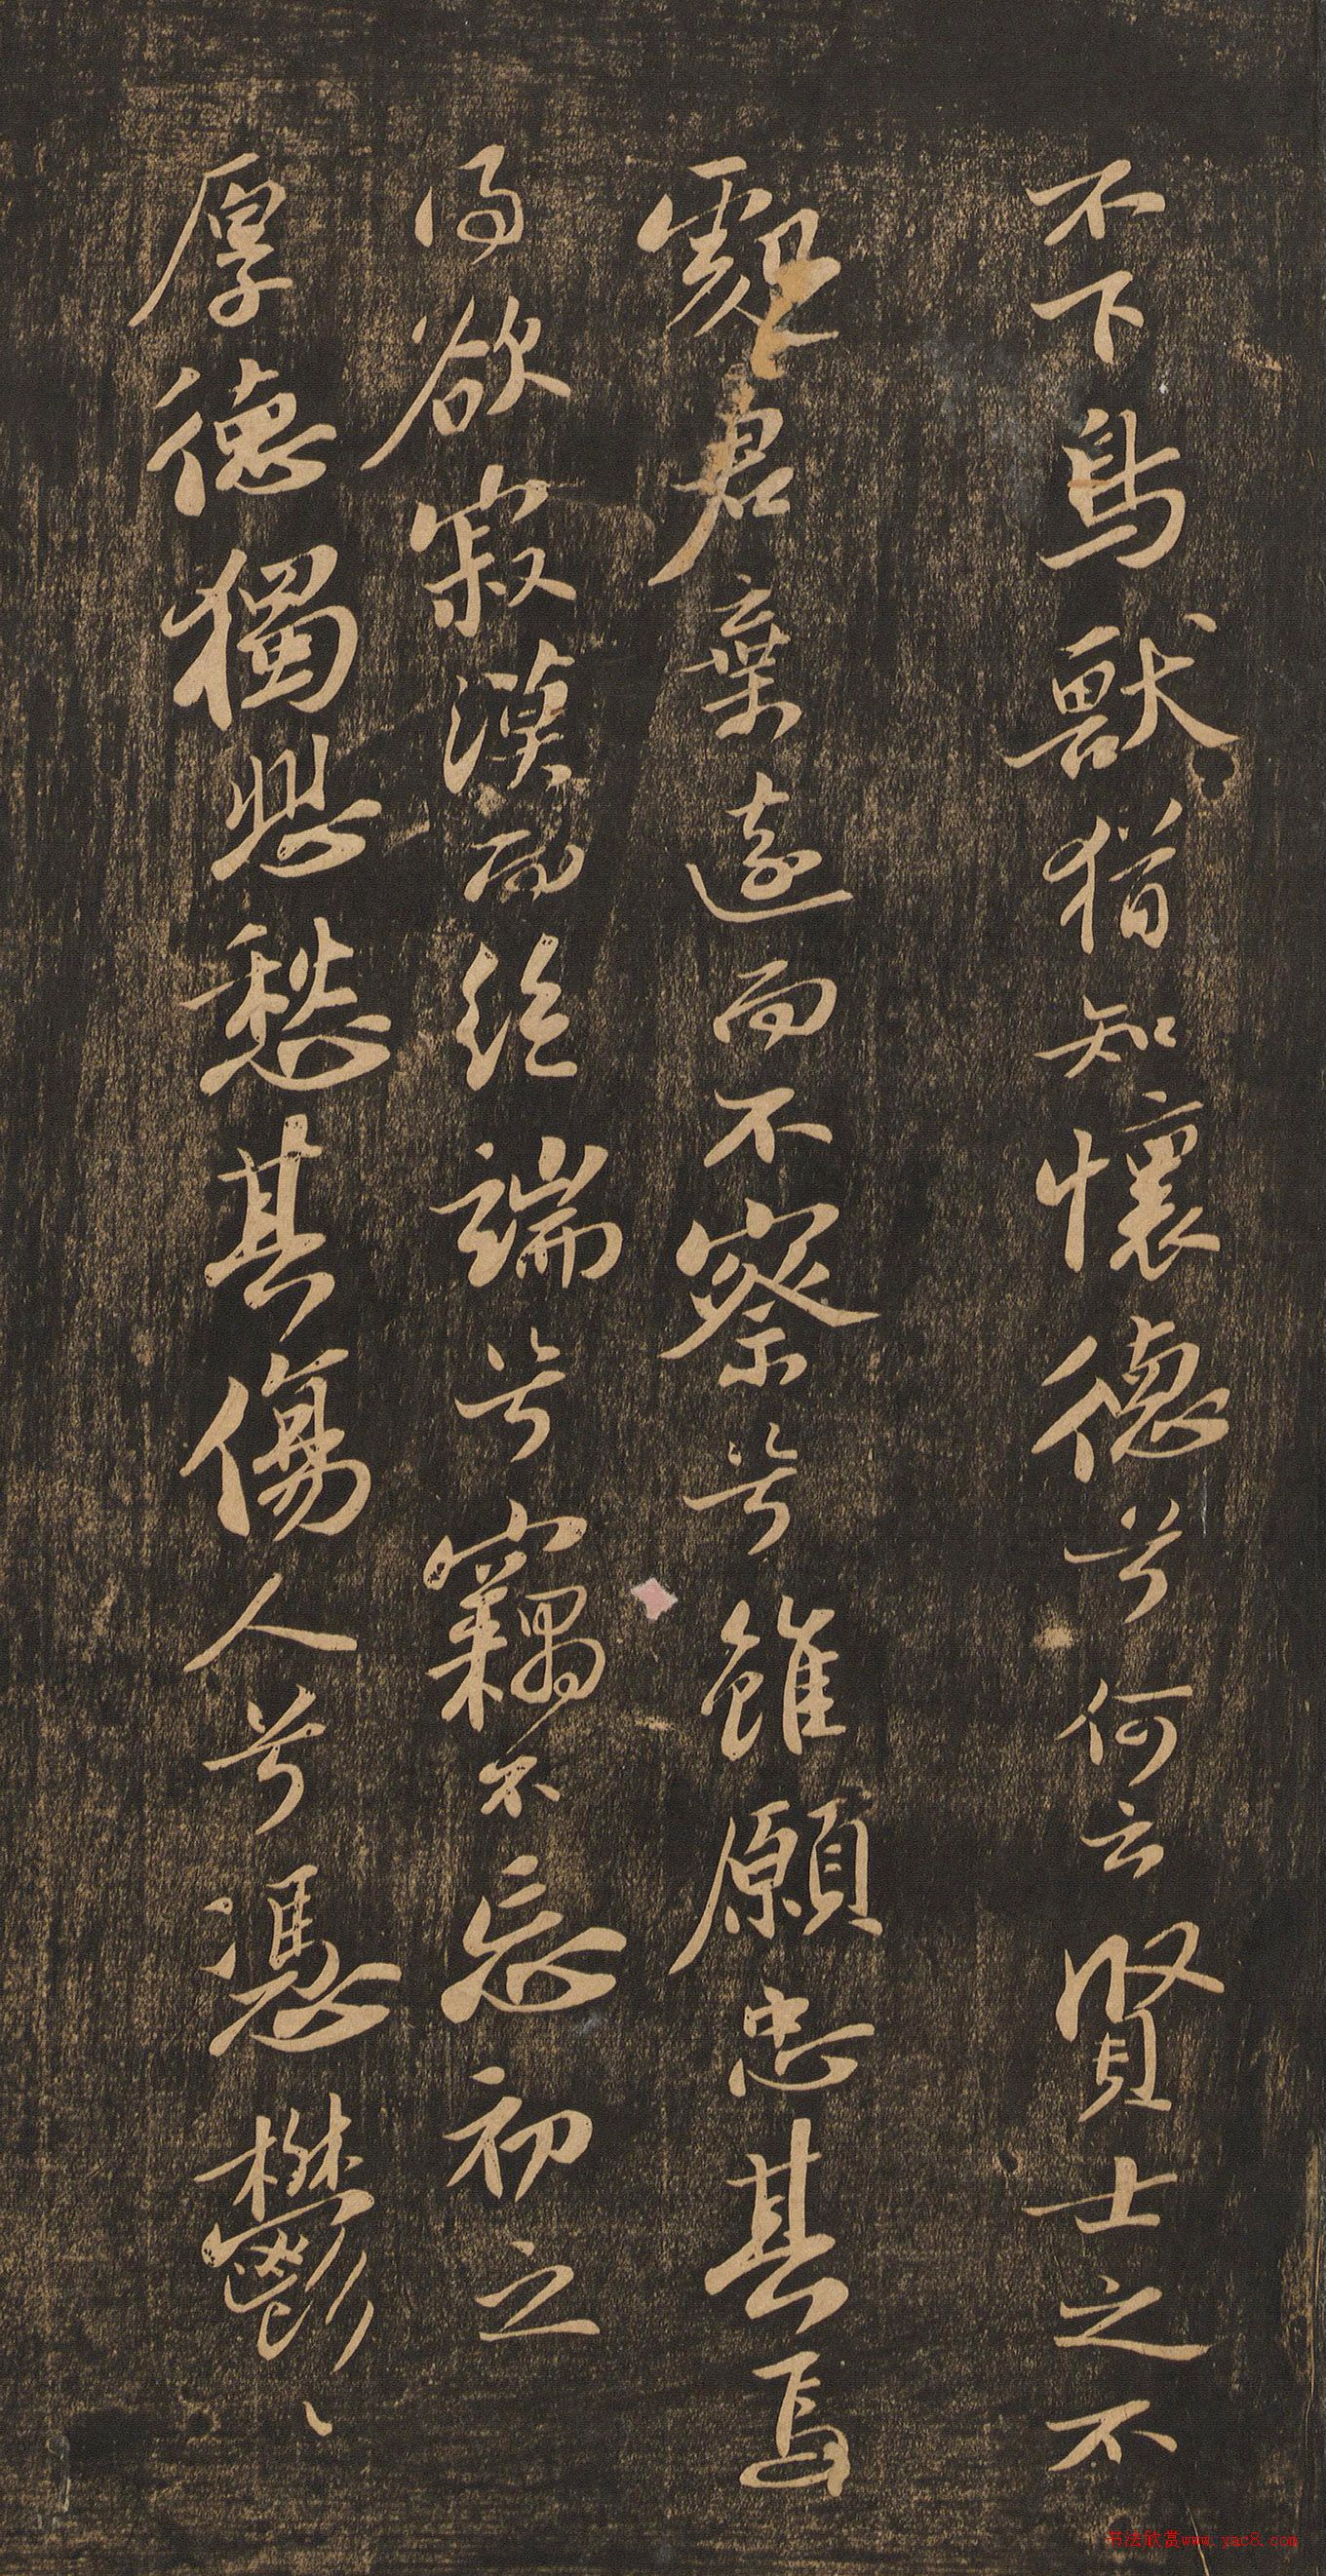 不下鳥獸猶知懷德兮何云賢士之不
處君棄遠而不察兮雖願忠其焉
得欲寂漠而絕端兮竊不忘初之
厚德獨悲愁其傷人兮馮鬱〻
书法欣赏www.yac8.com